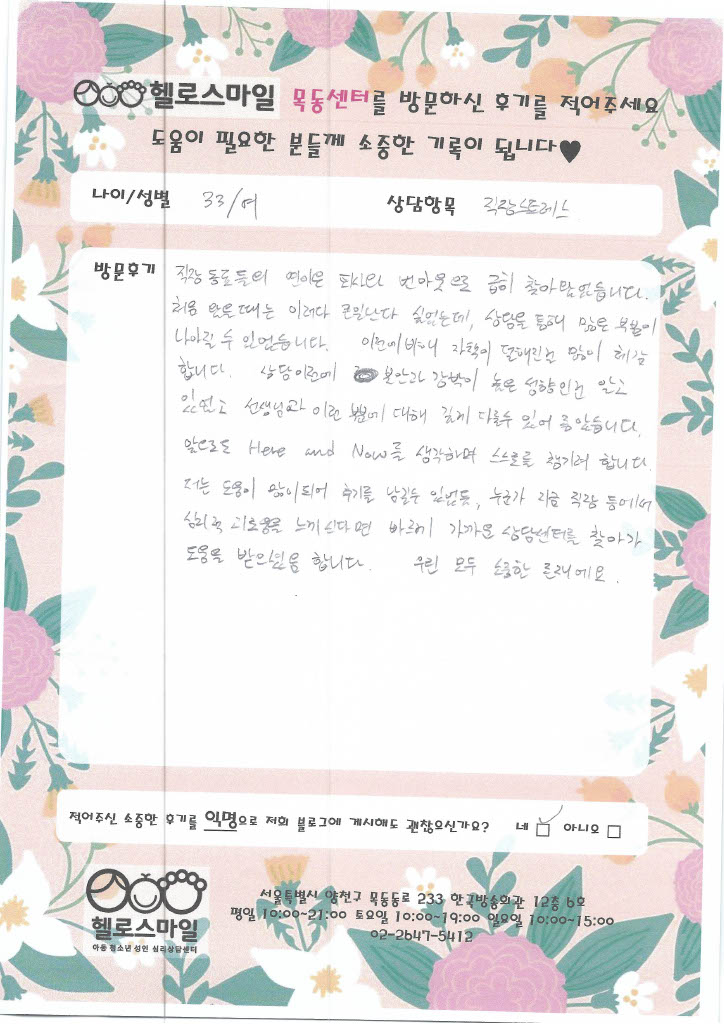 헬로스마일 목동센터를 방문하신 후기를 적어주세요
도움이 필요한 분들께 소중한 기록이 됩니다♥
나이/성별 33/여 상담항목 직장스트레스
방문후기 직장 동료들의 연이은 퇴사와 번아웃으로 급히 찾아왔었습니다.
처음 왔을 때는 이러다 큰일난다 싶었는데, 상담을 통해 많은 부분이
나아질 수 있었습니다. 이전에 비해 자책이 덜해진걸 많이 체감
합니다. 상담 이전에 불안과 강박이 높은 성향인건 알고
있었고 선생님과 이런 부분에 대해 깊게 다룰 수 있어 좋았습니다.
앞으로도 Here and Now를 생각하며 스스로를 챙기려 합니다.
저는 도움이 많이 되어 후기를 남길 수 있었듯, 누군가 지금 직장 등에서
심리적 괴로움을 느끼신다면 바르게 가까운 상담센터를 찾아가
도움을 받으셨음 합니다. 우린 모두 소중한 존재예요.
적어주신 소중한 후기를 익명으로 저희 블로그에 게시해도 괜찮으신가요? 네 ☑ 아니오 □
헬로스마일
아동 청소년 성인 심리상담센터
서울특별시 양천구 목동동로 233 한국방송회관 12층 6호
평일 10:00~21:00 토요일 10:00~19:00 일요일 10:00~15:00
02-2647-5412